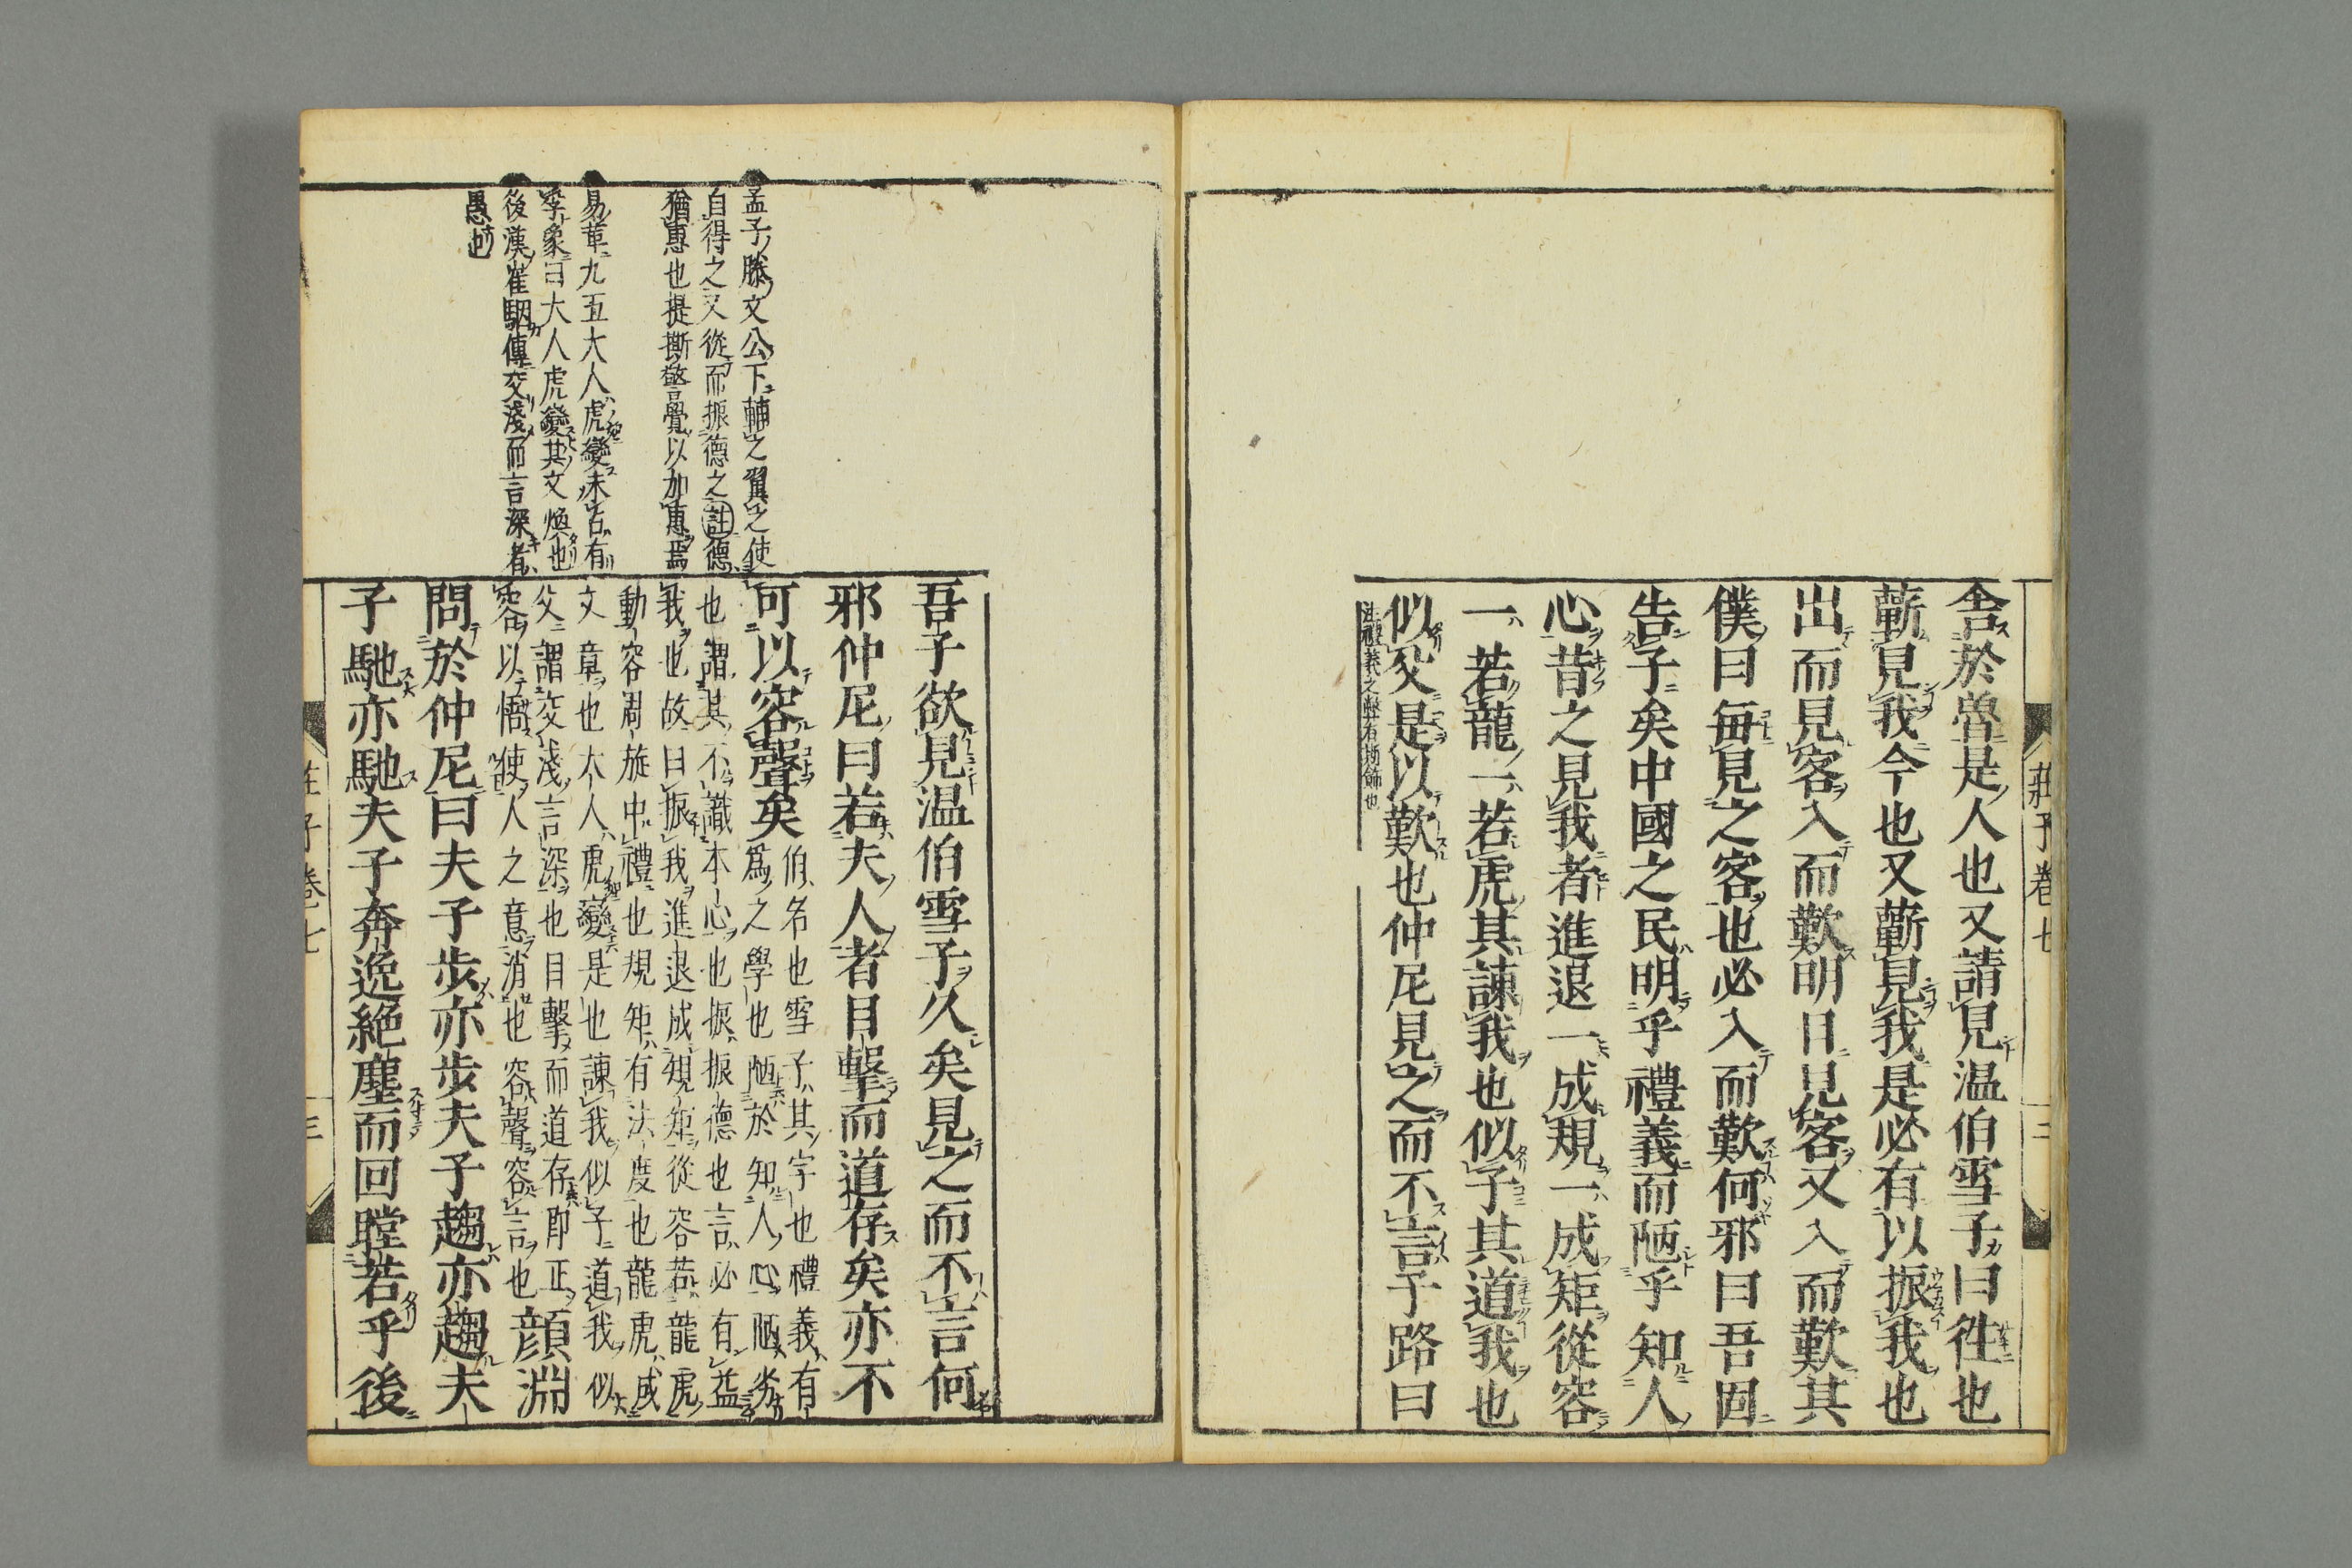 莊子卷七
舍於魯是人也又請見温伯雪子曰徃也
蘄見我今也又蘄見我是必有以振我也
出而見客入而歎明日見客又入而歎其
僕曰毎見之客也必入而歎何邪曰吾固
告子矣中國之民明乎禮義而陋乎知人
心昔之見我者進退一成規一成矩從容
一若龍一若虎其諫我也似子其道我也
似父是以歎也仲尼見之而不言子路曰
孟子滕文公下輔之翼之使
自得之又從而振德之註德
猶惠也提撕警覺以加惠焉
易革九五大人虎變未占有
孚象曰大人虎變其文煥也
後漢崔駰傳交淺而言深者
愚也
吾子欲見温伯雪子久矣見之而不言何
邪仲尼曰若夫人者目擊而道存矣亦不
可以容聲矣
伯名也雪子其字也禮義有
爲之學也陋於知人心陋劣
也謂其不識本心也振振德也言必有益
我也故曰振我進退成規矩從容若龍虎
動容周旋中禮也規矩有法度也龍虎成
文章也大人虎變是也諫我似子道我似
父謂交淺言深也目擊而道存即正
容以悟使人之意消也容聲容言也
顔淵
問於仲尼曰夫子步亦步夫子趨亦趨夫
子馳亦馳夫子奔逸絶塵而回瞠若乎後
莊子卷七